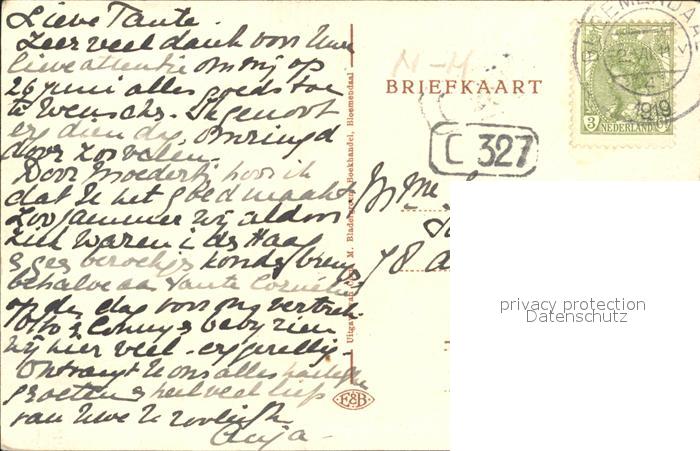 Lieve Tante.
Zeer veel dank voor Uwe
lieve attentie om mij op
26 juni alles goeds toe
te wenschen. Ik genoot
erg dien dag, omringd
door zoovelen.
Door Moedertje hoor ik
dat U het goed maakt.
Zoo jammer wij al door
ziek waren in den Haag
& geen bezoekjes konden breng
behalve aan Tante Cornélie
op den dag voor ons vertrek.
Otto & Conny & baby zien
wij hier veel - erg gezellig.
Ontvangt U ons alles hartelijke
groeten & heel veel liefs
van Uwe U zoo liefh.
N-H
BRIEFKAART
C 327
BLOEMENDAAL
1919
3 NEDERLAND
Mme
78
Uitgave van M. Bladergroen, Boekhandel, Bloemendaal
E&B
privacy protection
Datenschutz